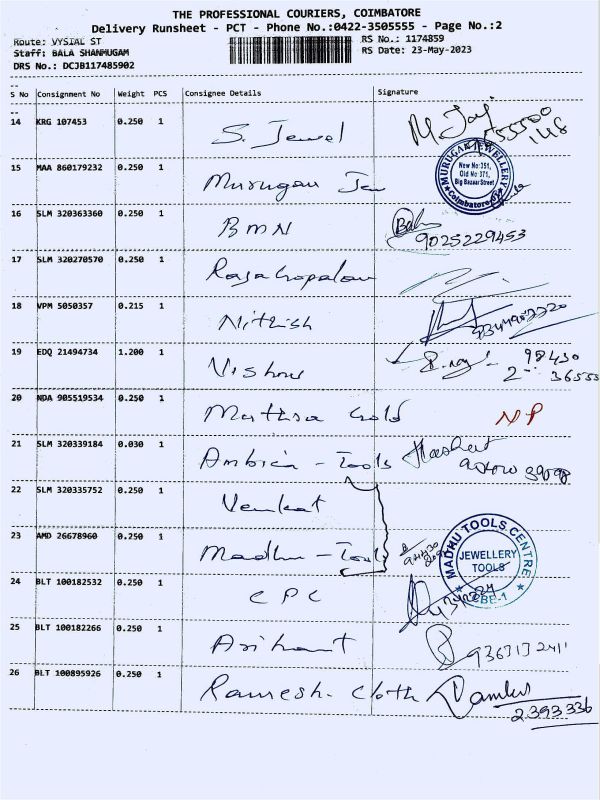 THE PROFESSIONAL COURIERS, COIMBATORE
Delivery Runsheet - PCT - Phone No.:0422-3505555 - Page No.:2
Route: VYSIAL ST RS No.: 1174859
Staff: BALA SHANMUGAM RS Date: 23-May-2023
DRS No.: DCJB117485902
S No Consignment No Weight PCS Consignee Details Signature
14 KRG 107453 0.250 1 S. Jewel
15 MAA 860179232 0.250 1 Murugan Jew
MURUGAN JEWELLERY
New No:351,
Old No 371,
Big Bazaar Street
Coimbatore
16 SLM 320363360 0.250 1 BMN 9025229453
17 SLM 320270570 0.250 1 Rajagopalan
18 VPM 5050357 0.215 1 Nithish
19 EDQ 21494734 1.200 1 98430
2 36555
20 NDA 905519534 0.250 1 Muthra Gold NP
21 SLM 320339184 0.030 1 Ambica - Tools
22 SLM 320335752 0.250 1 Venkat
23 AMD 26678960 0.250 1 Madhu - Tools
MADHU TOOLS CENTRE
JEWELLERY
TOOLS
CBE-1
24 BLT 100182532 0.250 1 CPC
25 BLT 100182266 0.250 1 Arihant
26 BLT 100895926 0.250 1 Ramesh Cloth
2393336